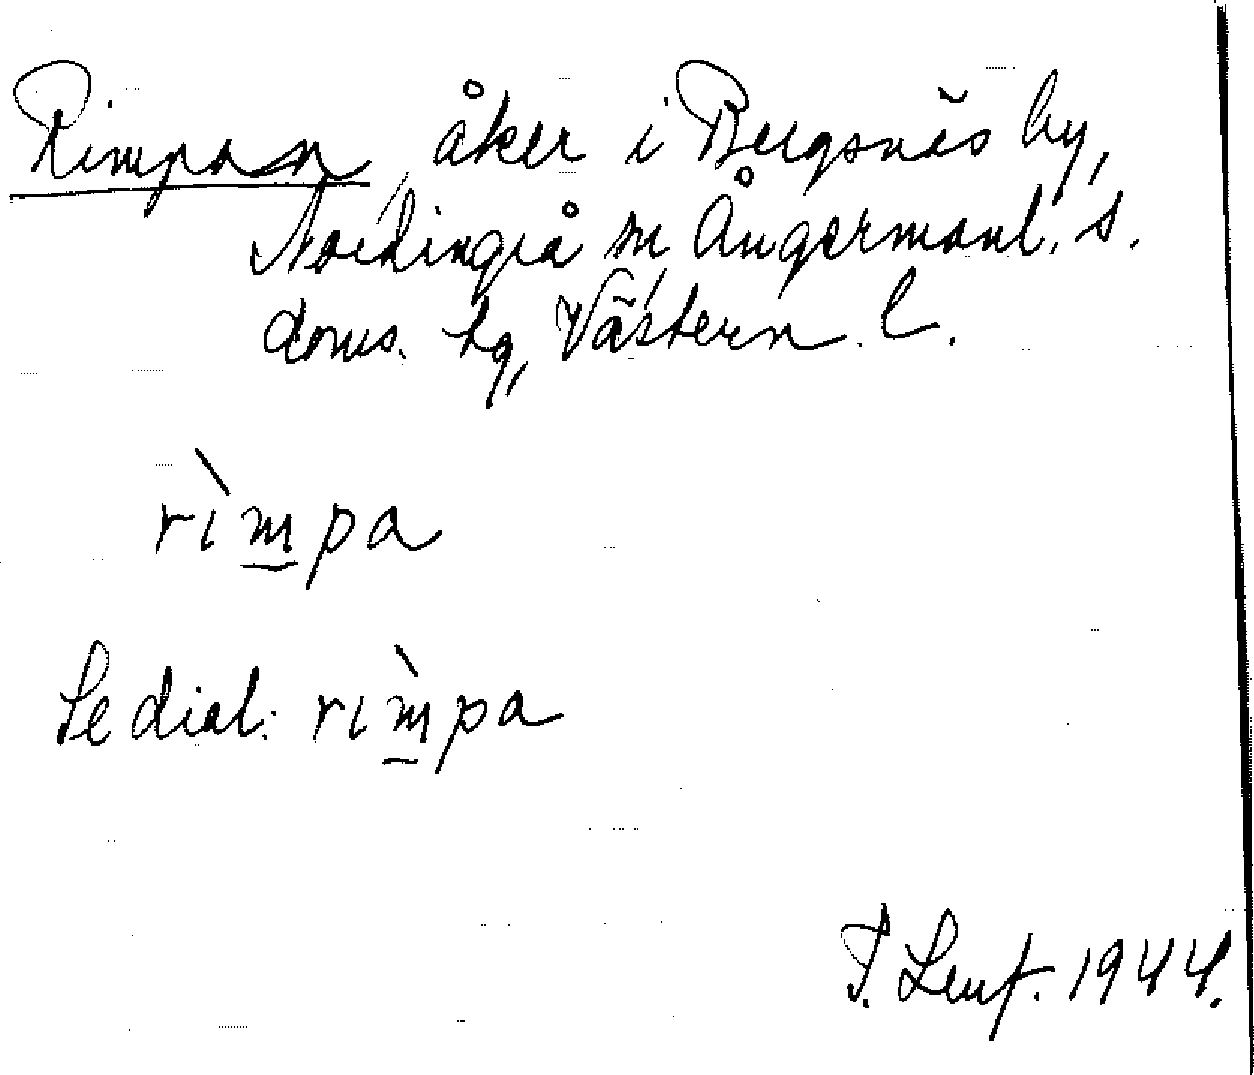 Rimpan, åker i Bergsnäs by,
Nordingrå sn, Ångermanl. s.
doms. hg, Västern. l.
rìmpa
Se dial. rìmpa
1944.